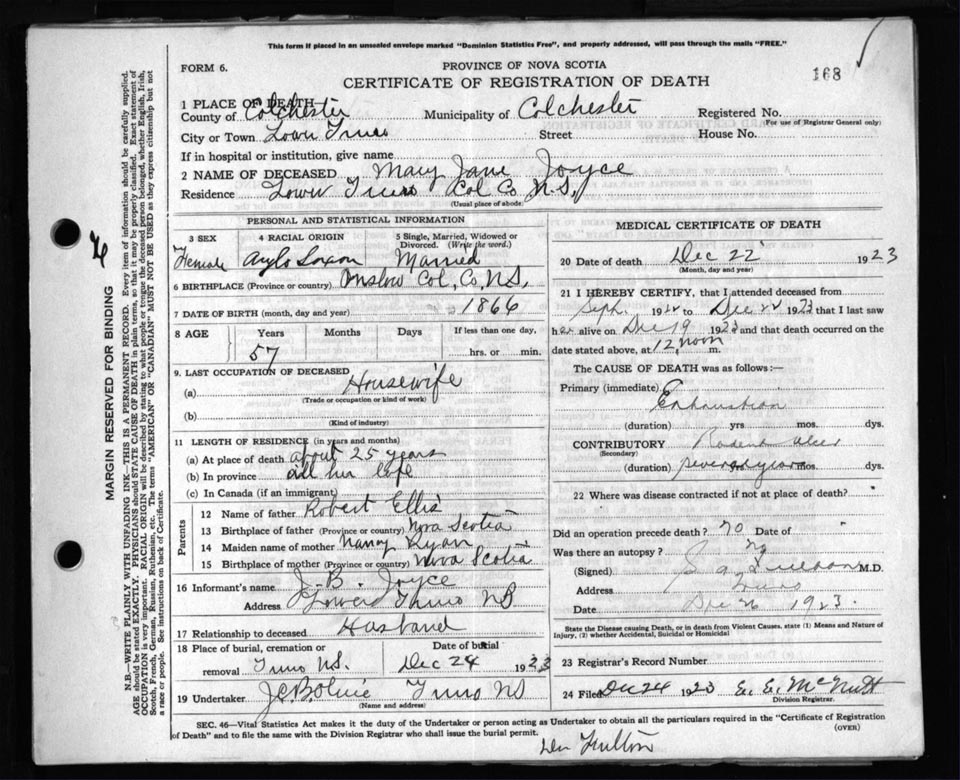 This form if placed in an unsealed envelope marked "Dominion Statistics Free", and properly addressed, will pass through the mails "FREE."
FORM 6.
PROVINCE OF NOVA SCOTIA
CERTIFICATE OF REGISTRATION OF DEATH
168
1 PLACE OF DEATH—
County of Colchester Municipality of Colchester Registered No.
(For use of Registrar General only)
City or Town Lower Truro Street House No.
If in hospital or institution, give name
2 NAME OF DECEASED Mary Jane Joyce
Residence Lower Truro Col Co N.S.
(Usual place of abode)
PERSONAL AND STATISTICAL INFORMATION
3 SEX 4 RACIAL ORIGIN 5 Single, Married, Widowed or Divorced. (Write the word.)
Female Anglo Saxon Married
6 BIRTHPLACE (Province or country) Onslow Col, Co, N.S,
7 DATE OF BIRTH (month, day and year) 1866
8 AGE Years Months Days If less than one day,
57 hrs. or min.
9. LAST OCCUPATION OF DECEASED
(a) Housewife
(Trade or occupation or kind of work)
(b)
(Kind of industry)
11 LENGTH OF RESIDENCE (in years and months)
(a) At place of death about 25 years
(b) In province all her life
(c) In Canada (if an immigrant)
Parents
12 Name of father Robert Ellis
13 Birthplace of father (Province or country) Nova Scotia
14 Maiden name of mother Nancy Ryan
15 Birthplace of mother (Province or country) Nova Scotia
16 Informant's name J. B. Joyce
Address Lower Truro NS
17 Relationship to deceased Husband
18 Place of burial, cremation or removal Truro N.S. Date of burial Dec 24 1923
19 Undertaker Truro NS
(Name and address)
MEDICAL CERTIFICATE OF DEATH
20 Date of death Dec 22 1923
(Month, day and year)
21 I HEREBY CERTIFY, that I attended deceased from
Sept. 19 to Dec 22 1923 that I last saw
her alive on Dec 19 1923 and that death occurred on the
date stated above, at 12, noon m.
The CAUSE OF DEATH was as follows:—
Primary (immediate) Exhaustion
(duration) yrs mos. dys.
CONTRIBUTORY Rodent Ulcer
(Secondary)
(duration) several years mos. dys.
22 Where was disease contracted if not at place of death?
Did an operation precede death? no Date of
Was there an autopsy? no
(Signed) M.D.
Address Truro
Date Dec 26 1923.
State the Disease causing Death, or in death from Violent Causes, state (1) Means and Nature of Injury, (2) whether Accidental, Suicidal or Homicidal
23 Registrar's Record Number
24 Filed Dec 24 1923 E. E. McNutt
Division Registrar.
SEC. 46—Vital Statistics Act makes it the duty of the Undertaker or person acting as Undertaker to obtain all the particulars required in the "Certificate of Registration
of Death" and to file the same with the Division Registrar who shall issue the burial permit.
(OVER)
Fulton
MARGIN RESERVED FOR BINDING
N.B.—WRITE PLAINLY WITH UNFADING INK—THIS IS A PERMANENT RECORD. Every item of information should be carefully supplied.
AGE should be stated EXACTLY. PHYSICIANS should STATE CAUSE OF DEATH in plain terms, so that it may be properly classified. Exact statement of
OCCUPATION is very important. RACIAL ORIGIN will be described by stating to what people or tongue the deceased person belonged, whether English, Irish,
Scotch, French, German, Russian, Ruthenian, etc. The terms "AMERICAN" OR "CANADIAN" MUST NOT BE USED as they express citizenship but not
a race or people. See instructions on back of Certificate.